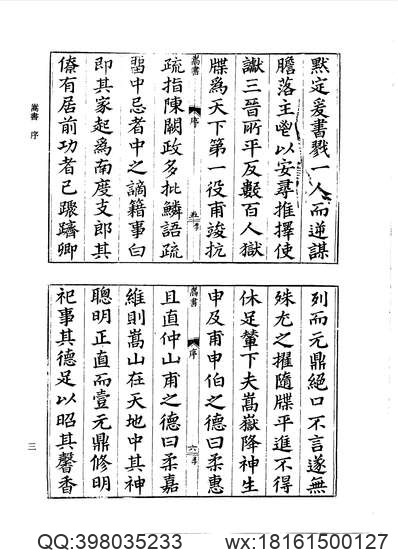 默定爰書戮一人而逆謀
膽落主鬯以安尋推擇使
讞三晉所平反數百人獄
牒爲天下第一役甫竣抗
疏指陳闕政多批鱗語疏
留中忌者中之謫籍事白
即其家起爲南度支郎其
僚有居前功者已躐躋卿
列而元鼎絕口不言遂無
殊尤之擢隨牒平進不得
休足輦下夫嵩嶽降神生
申及甫申伯之德曰柔惠
且直仲山甫之德曰柔嘉
維則嵩山在天地中其神
聰明正直而壹元鼎修明
祀事其德足以昭其馨香
嵩書 序
嵩書
序
嵩書
序
六
三
QQ:398035233
wx:18161500127